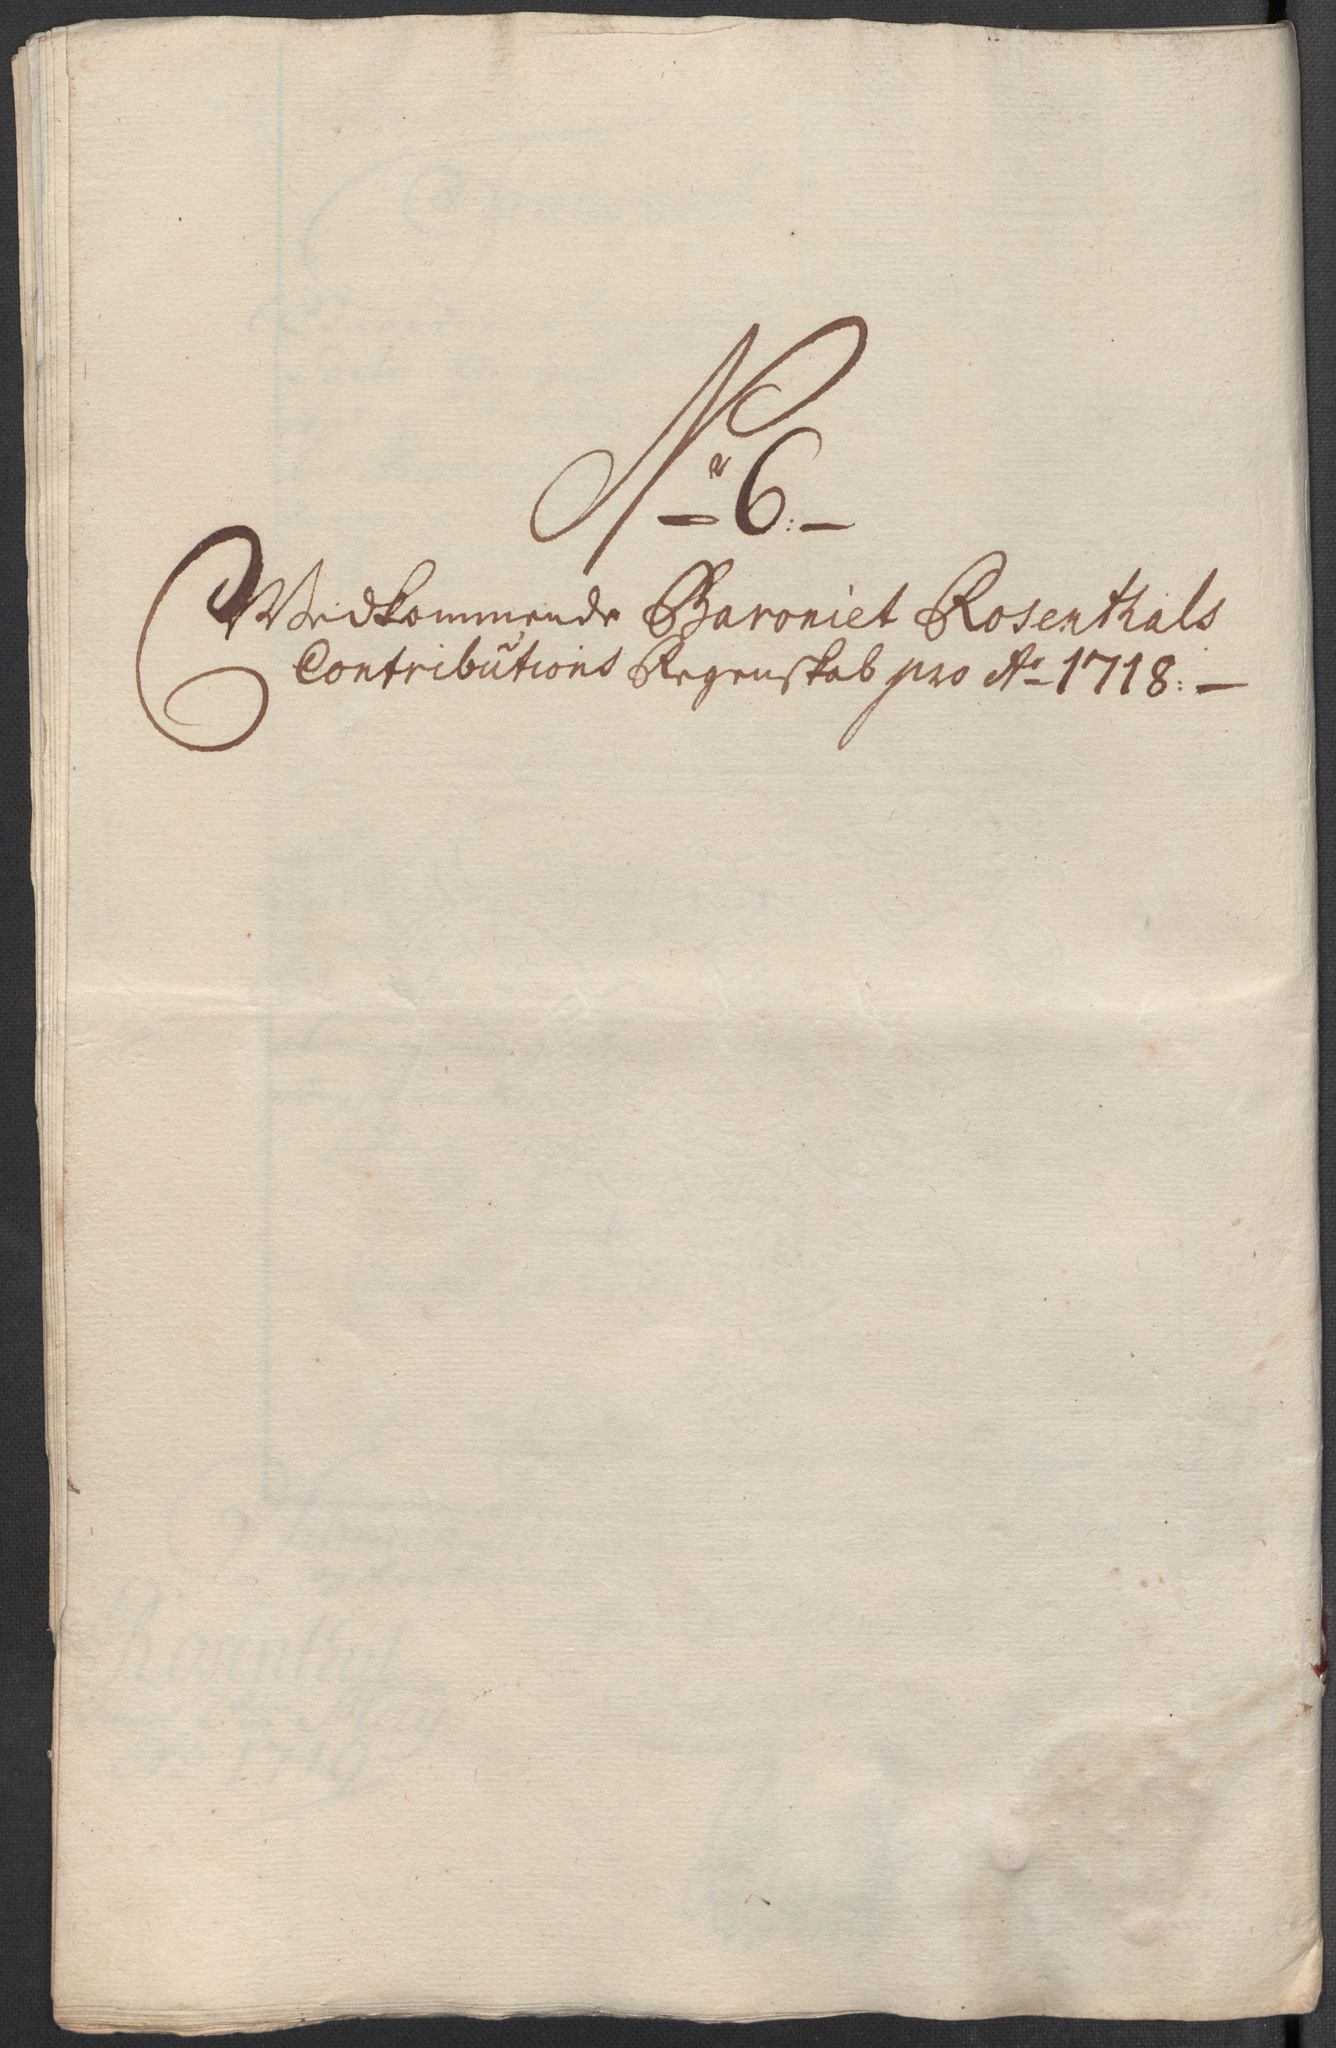 No 6:
Vedkommende Baroniet Rosenthals
Contributions Regenskab pro Ao 1718: